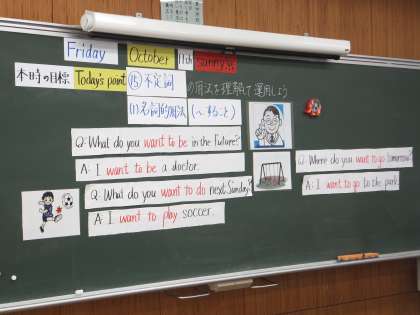 Friday October 19th Sunny
本時の目標 Today's point ⑮不定詞 の用法を理解して運用しよう
(1)名詞的用法(〜すること)
Q: What do you want to be in the Future?
A: I want to be a doctor.
Q: Where do you want to go tomorrow
A: I want to go to the park.
Q: What do you want to do next Sunday?
A: I want to play soccer.